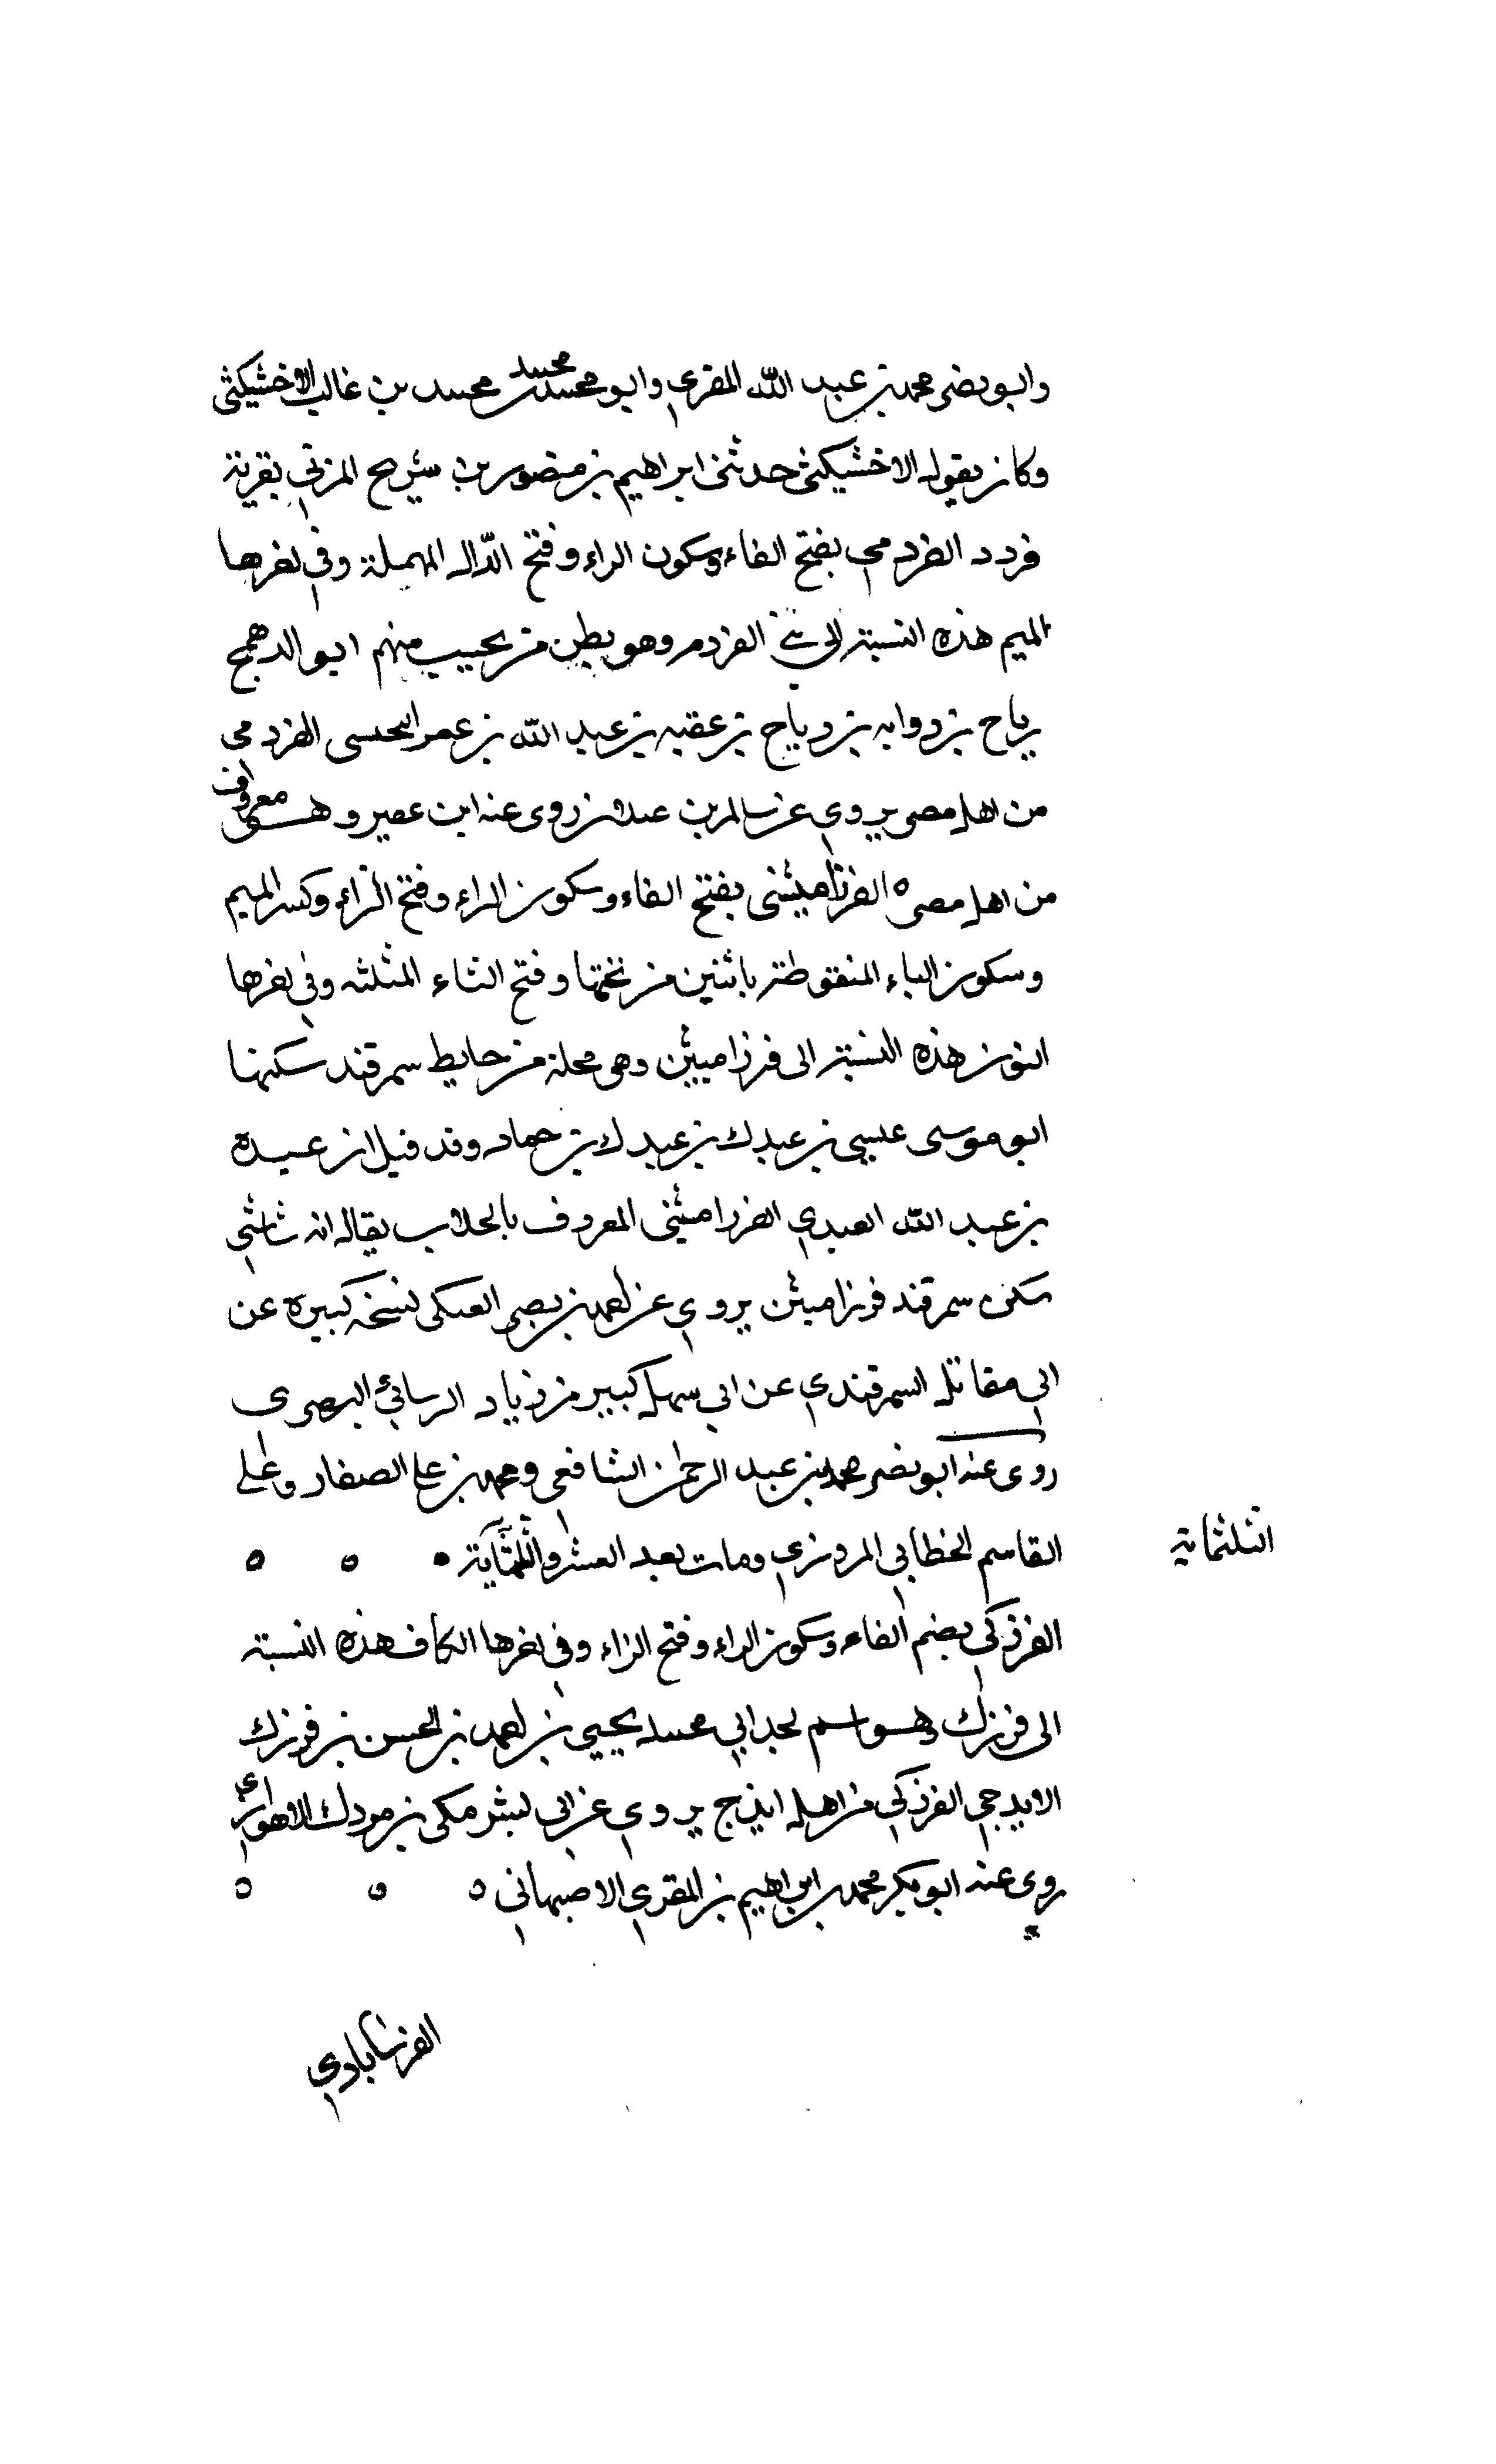 وابو نصر محمد بن عبد الله المقري وابو محمد محمد محمد بن غالب الاخشيكثي
وكان يقول الاخشيكثي حدثني ابراهيم بن منصور بن شريح المزني بقرية
فردد الفردمي بفتح الفاء وسكون الراء وفتح الدال المهملة وفي اخرها
الميم هذه النسبة الى بني الفردم وهو بطن من تجيب منهم ابو الدهمج
رياح بن دوابه بن دياج بن عقبه بن عبد الله بن عمر الفردمي
من اهل مصر يروي عن سالم بن روى عنه ابن عفير وهو معروف
من اهل مصر ه الفرزاميثني بفتح الفاء وسكون الراء وفتح الزاء وكسر الميم
وسكون الياء المنقوطة باثنين من تحتها وفتح الثاء المثلثه وفي اخرها
النون هذه النسبة الى فرزاميثن وهي محلة من حايط سمرقند سكنها
ابو موسى عيسى بن عبدك بن عبدك بن حماد وقد قيل ان عبده
بن عبد الله العبدي الفرزاميثني المعروف بالجلاب يقال انه شاشي
سكن سمرقند فرزاميثن يروي عن احمد بن نصر العتكي نسخه كبيرة عن
ابي مقاتل السمرقندي عن ابي سهل كبير من زياد البصري
روى عنه ابو نصر محمد بن عبد الرحمن الشافعي ومحمد بن علي الصفار وعلي
القاسم الخطابي المروزي ومات بعد العشر والثلثماية ه ه ه
الثلثماية
الفرزكي بضم الفاء وسكون الراء وفتح الزاء وفي اخرها الكاف هذه النسبة
الى فرزك وهو اسم لجد ابي محمد يحيى بن احمد بن الحسن بن فرزك
الايذجي الفرزكي من اهل ايذج يروي عن ابي بشر مكي بن مردك الاهوازي
روى عنه ابو بكر محمد بن ابراهيم بن المقري الاصبهاني ه ه ه
الفرساباذي